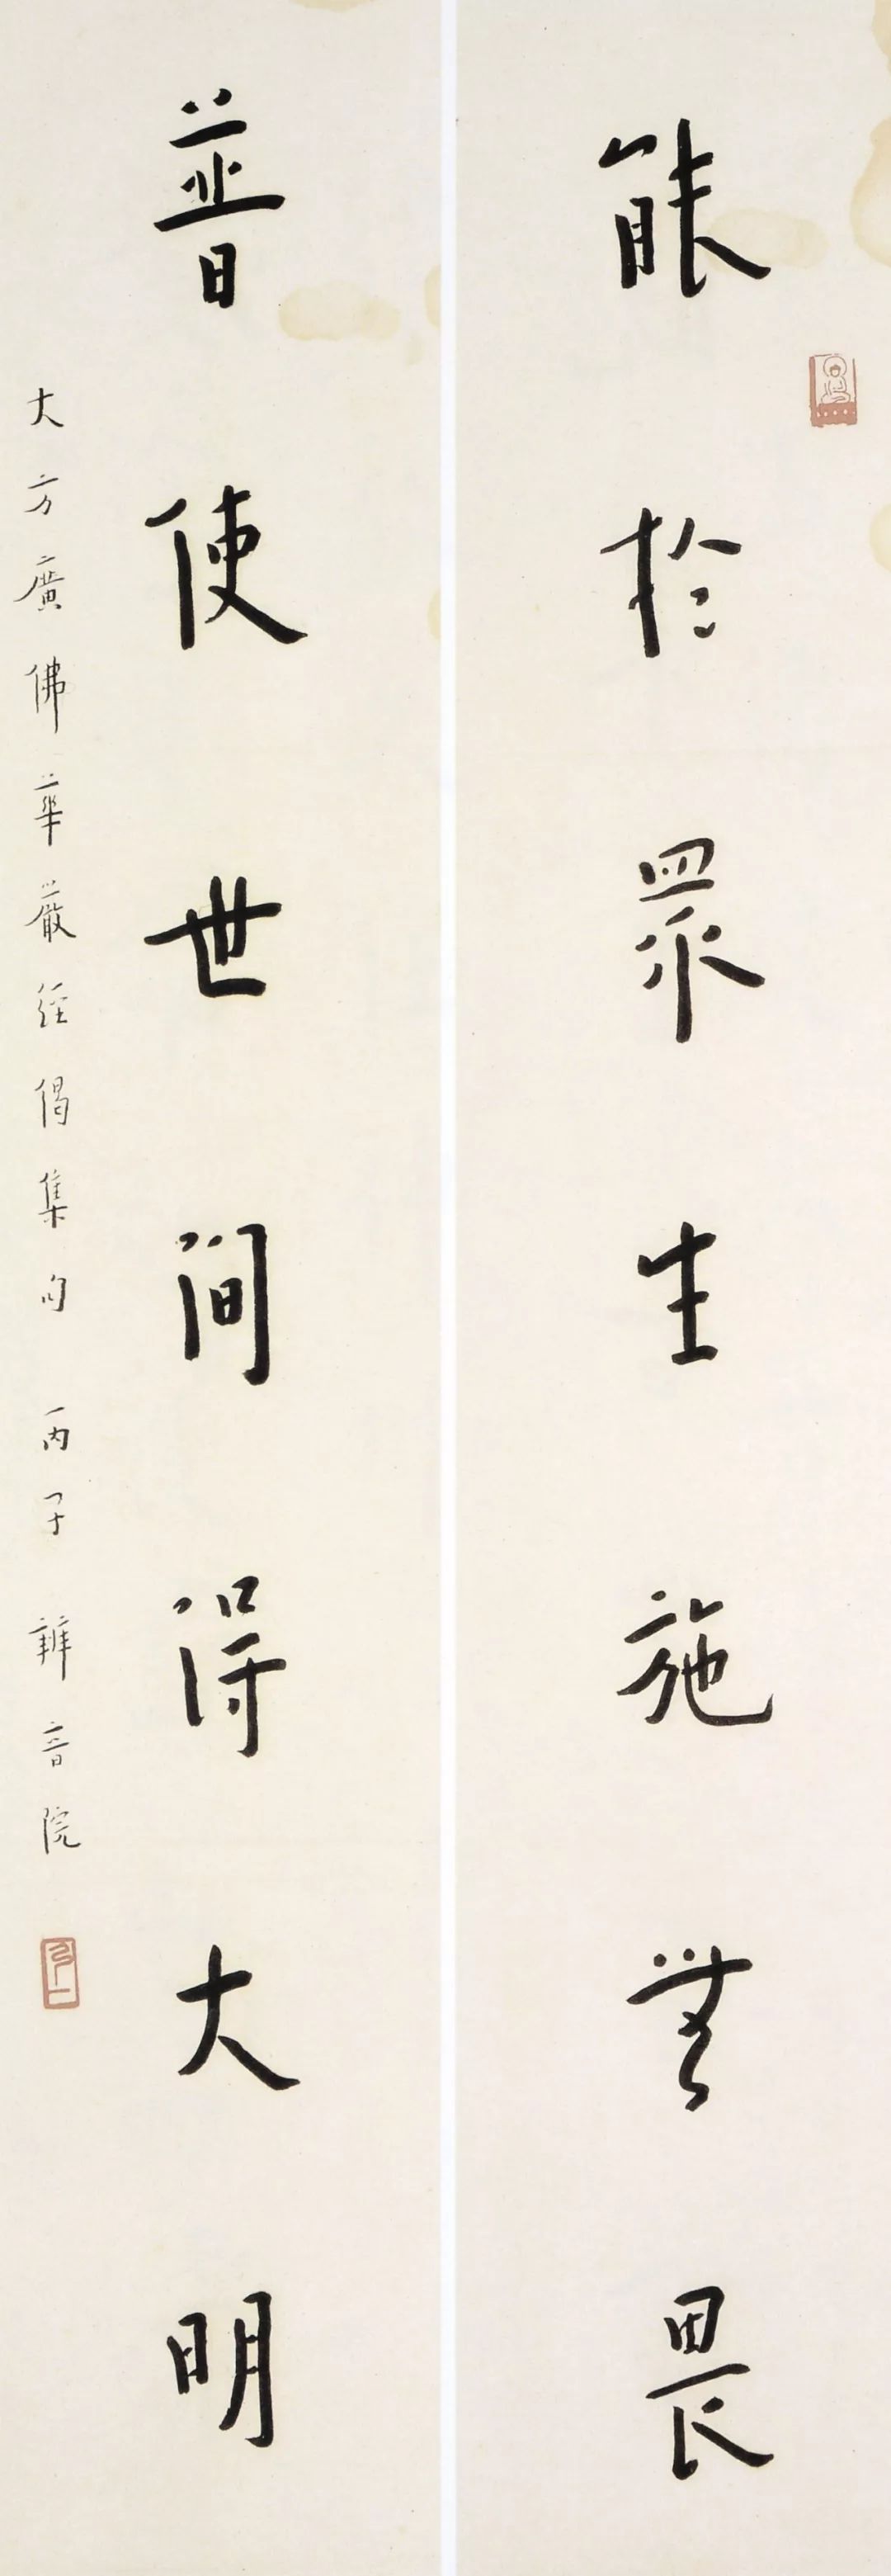 能於眾生施無畏
普使世間得大明
大方廣佛華嚴經偈集句 丙子 辨音院
弘一